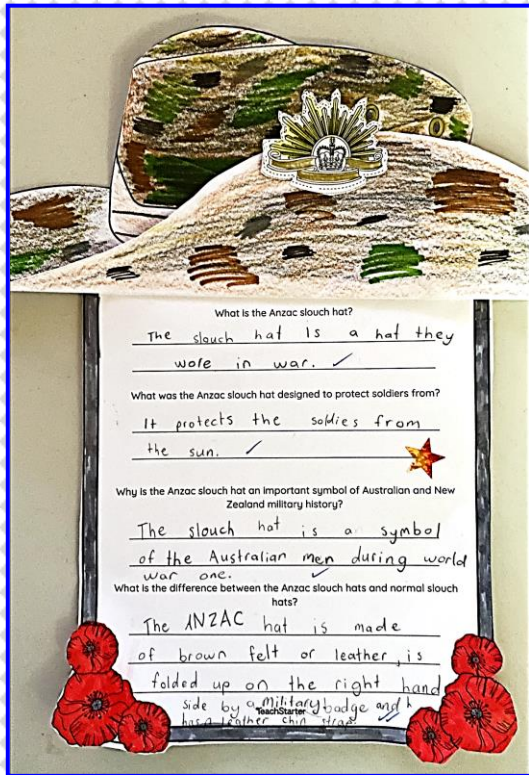 What is the Anzac slouch hat?
The slouch hat Is a hat they
wore in war.
What was the Anzac slouch hat designed to protect soldiers from?
It protects the soldies from
the sun.
Why is the Anzac slouch hat an important symbol of Australian and New
Zealand military history?
The slouch hat is a symbol
of the Australian men during world
war one.
What is the difference between the Anzac slouch hats and normal slouch
hats?
The ANZAC hat is made
of brown felt or leather, is
folded up on the right hand
side by a military badge and h
TeachStarter
has a leather chin strap.